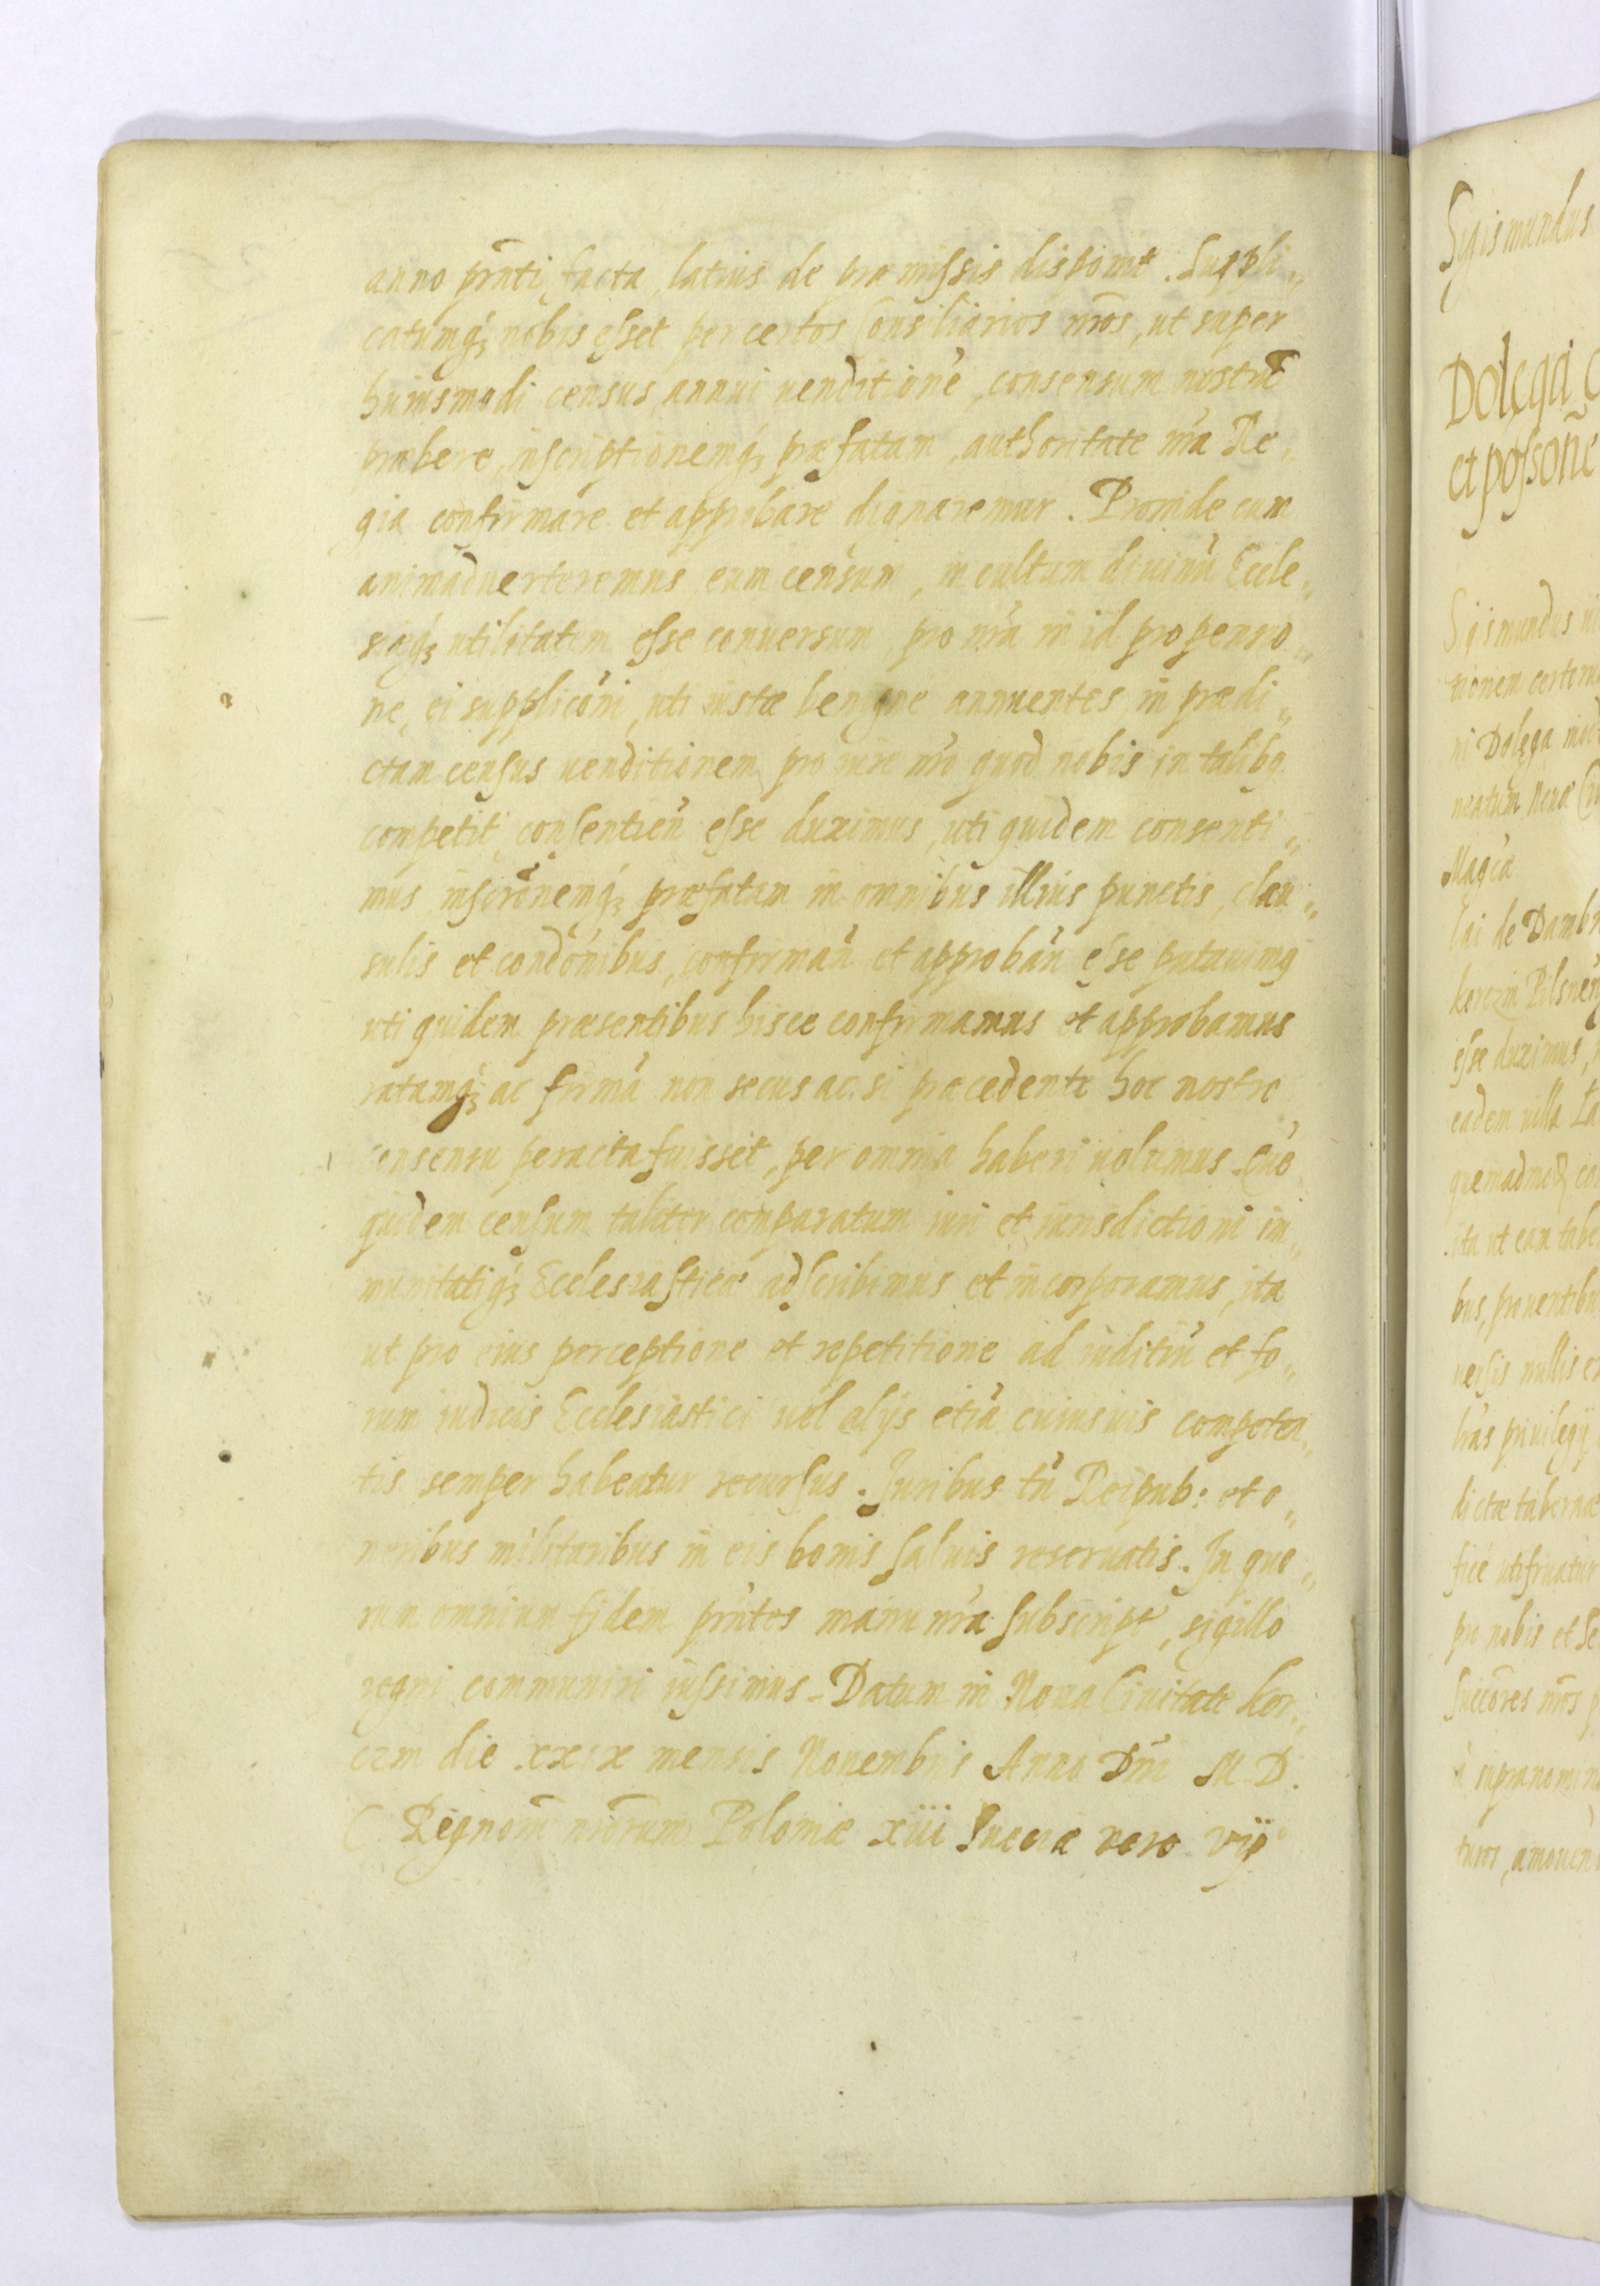 anno pr̃nti facta, latius de præmissis disponit. Suppli„
catumq́ꝫ nobis esset per certos Consiliarios nr̃os, ut super
huiusmodi census annui uenditionē, consensum nostrũ
præbere, inscriptionemq́ꝫ præfatam, authoritate nr̃a Re„
gia confirmare et approbare dignaremur. Proinde cum
animaduerteremus eum censum, in cultum diuinũ Eccle„
siæq́ꝫ utilitatem esse conuersum, pro nr̃a in id propensio„
ne, ei supplicõni, uti iustæ benigne annuentes, in prædi„
ctam census uenditionem, pro iure nr̃o quod nobis in talibꝯ
competit, consentien̄ esse duximus, uti quidem consenti„
mus inscrõnemq́ꝫ præfatam in omnibus illius punctis, clau„
sulis et condõnibus, confirman̄ et approban̄ esse putauimꝯ
uti quidem præsentibus hisce confirmamus et approbamus
ratamq́ꝫ ac firmã non secus ac si præcedente hoc nostro
consensu peracta fuisset, per omnia haberi uolumus. Quē
quidem censum taliter comparatum iuri et iurisdictioni im„
munitatiq́ꝫ Ecclesiasticæ adscribimus et incorporamus, ita
ut pro eius perceptione et repetitione ad iuditiũ et fo„
rum iudicis Ecclesiastici uel alijs etiã cuiusuis competen„
tis semper habeatur recursus. Juribus tñ Reipub: et o„
neribus militaribus in eis bonis saluis reseruatis. In quo„
rum omnium fidem pr̃ntes manu nr̃a subscript̃, sigillo
regni communiri iussimus. Datum in Noua Ciuitate Kor„
czin die xxix mensis Nouembris Anno Dñi M.D.
C Regnorũ nr̃orum Poloniæ xiii Sueciæ uero vij°
Sigismundus
Dolęga
et possonē
Sigismundus
tionem certorum
ni Dolęga
Magca
lai de Dambr
korczin Pilsnen̄
esse duximus,
eadem uilla
quemadmoꝺ
ita ut eam
bus, prouentibus
uersis nullis
lr̃as priuilegij
dictæ tabernæ
utifruatur
pro nobis et
succores nr̃os
supranomina
turos, amouen